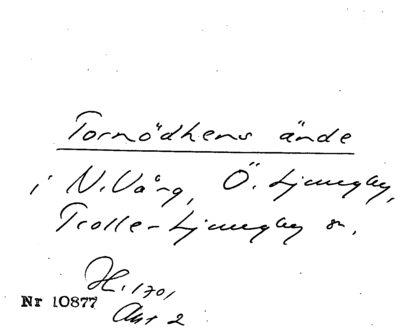 Tornödhens ände
i N. Vång, Ö. Ljungby,
Trolle-Ljungby sn,
H. 1701
Nr 10877
Akt 2